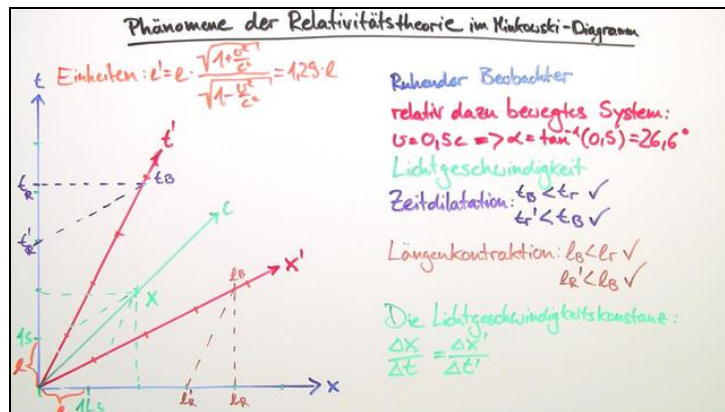 Phänomene der Relativitätstheorie im Minkowski-Diagramm
Einheiten: l' = l · √(1+v²/c²) / √(1-v²/c²) = 1,29 · l
Ruhender Beobachter
relativ dazu bewegtes System:
v = 0,5c => α = tan⁻¹(0,5) = 26,6°
Lichtgeschwindigkeit
Zeitdilatation: t_B < t_r ✓
t_r' < t_B ✓
Längenkontraktion: l_B < l_r ✓
l_R' < l_B ✓
Die Lichtgeschwindigkeitskonstanz:
Δx/Δt = Δx'/Δt'
t
t'
t_R
t_B
t_R'
c
x'
l_B
X
1s
l
l
1Ls
l_R'
l_R
x